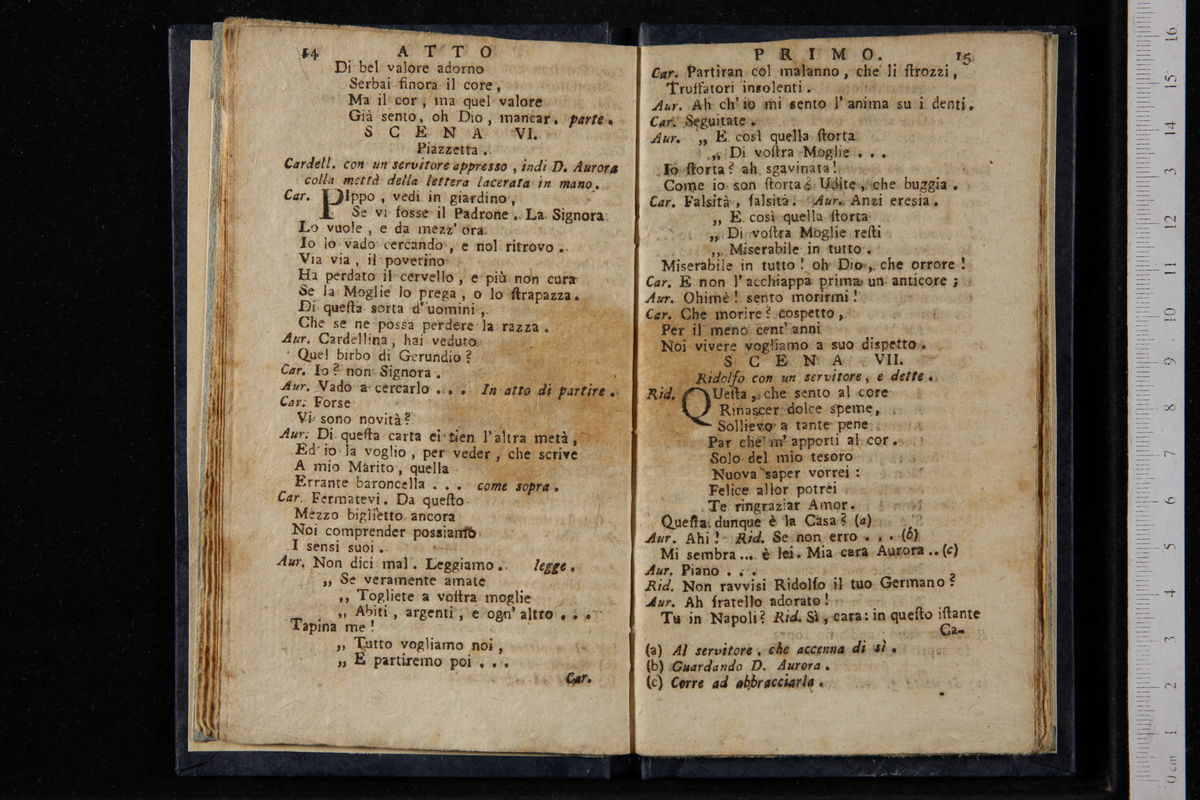 14 ATTO
Di bel valore adorno
Serbai finora il core,
Ma il cor, ma quel valore
Già sento, oh Dio, mancar. parte.
SCENA VI.
Piazzetta.
Cardell. con un servitore appresso, indi D. Aurora
colla mettà della lettera lacerata in mano.
Car. PIppo, vedi in giardino,
Se vi fosse il Padrone. La Signora
Lo vuole, e da mezz' ora
Io lo vado cercando, e nol ritrovo.
Via via, il poverino
Ha perdato il cervello, e più non cura
Se la Moglie lo prega, o lo ſtrapazza.
Di queſta sorta d'uomini,
Che se ne possa perdere la razza.
Aur. Cardellina, hai veduto
Quel birbo di Gerundio?
Car. Io? non Signora.
Aur. Vado a cercarlo .... In atto di partire.
Car. Forse
Vi sono novità?
Aur. Di queſta carta ei tien l'altra metà,
Ed io la voglio, per veder, che scrive
A mio Marito, quella
Errante baroncella ... come sopra.
Car. Fermatevi. Da queſto
Mezzo biglietto ancora
Noi comprender possiamo
I sensi suoi.
Aur. Non dici mal. Leggiamo. legge.
„ Se veramente amate
„ Togliete a voſtra moglie
„ Abiti, argenti, e ogn' altro ...
Tapina me!
„ Tutto vogliamo noi,
„ E partiremo poi ...
Car.
PRIMO. 15
Car. Partiran col malanno, che li ſtrozzi,
Truffatori insolenti.
Aur. Ah ch' io mi sento l' anima su i denti.
Car. Seguitate.
Aur. „ E così quella ſtorta
„ Di voſtra Moglie ...
Io ſtorta? ah sgavinata!
Come io son ſtorta? Udite, che buggia.
Car. Falsità, falsità. Aur. Anzi eresia.
„ E così quella ſtorta
„ Di voſtra Moglie reſti
„ Miserabile in tutto.
Miserabile in tutto! oh Dio, che orrore!
Car. E non l' acchiappa prima un anticore;
Aur. Ohimè! sento morirmi!
Car. Che morire? cospetto,
Per il meno cent' anni
Noi vivere vogliamo a suo dispetto.
SCENA VII.
Ridolfo con un servitore, e dette.
Rid. QUeſta, che sento al core
Rinascer dolce speme,
Sollievo a tante pene
Par che m' apporti al cor.
Solo del mio tesoro
Nuova saper vorrei:
Felice allor potrei
Te ringraziar Amor.
Queſta dunque è la Casa? (a)
Aur. Ahi! Rid. Se non erro ... (b)
Mi sembra... è lei. Mia cara Aurora.. (c)
Aur. Piano ...
Rid. Non ravvisi Ridolfo il tuo Germano?
Aur. Ah fratello adorato!
Tu in Napoli? Rid. Sì, cara: in queſto iſtante
Ca-
(a) Al servitore, che accenna di sì.
(b) Guardando D. Aurora.
(c) Corre ad abbracciarla.
0 cm 1 2 3 4 5 6 7 8 9 10 11 12 13 14 15 16